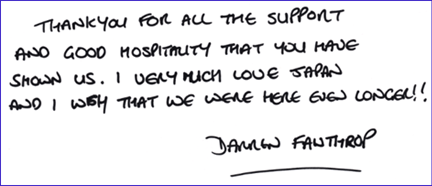 THANKYOU FOR ALL THE SUPPORT
AND GOOD HOSPITALITY THAT YOU HAVE
SHOWN US. I VERY MUCH LOVE JAPAN
AND I WISH THAT WE WERE HERE EVEN LONGER!!
DARREN FAWTHROP